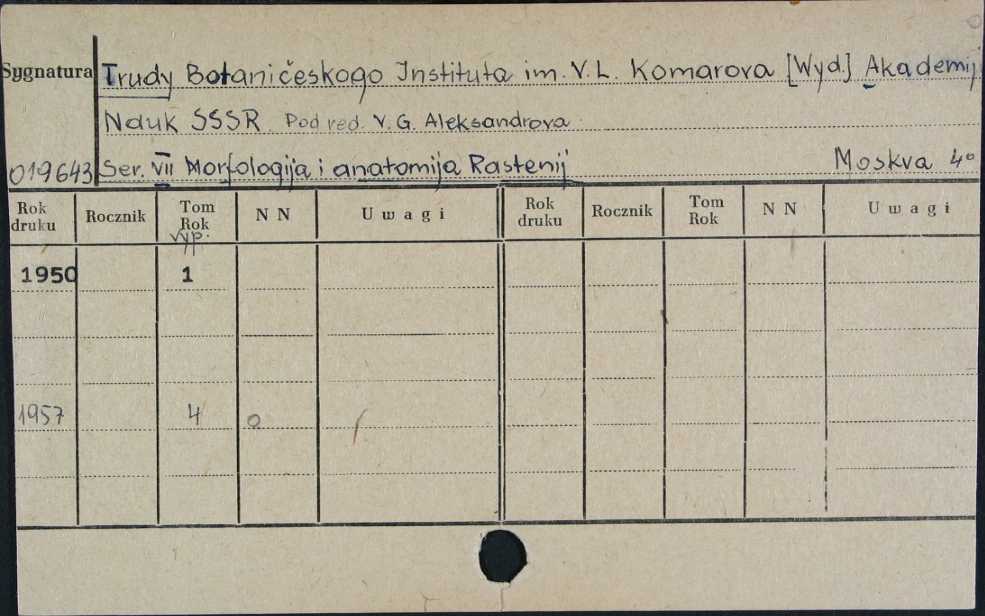 Sygnatura Trudy Botaničeskogo Instituta im. V. L. Komarova [Wyd.] Akademij
Nauk SSSR Pod red. V. G. Aleksandrova
019643 Ser. VII Morfologija i anatomija Rastenij Moskva 4º
Rok druku Rocznik Tom Rok N N Uwagi Rok druku Rocznik Tom Rok N N Uwagi
vyp.
1950 1
1957 4 o